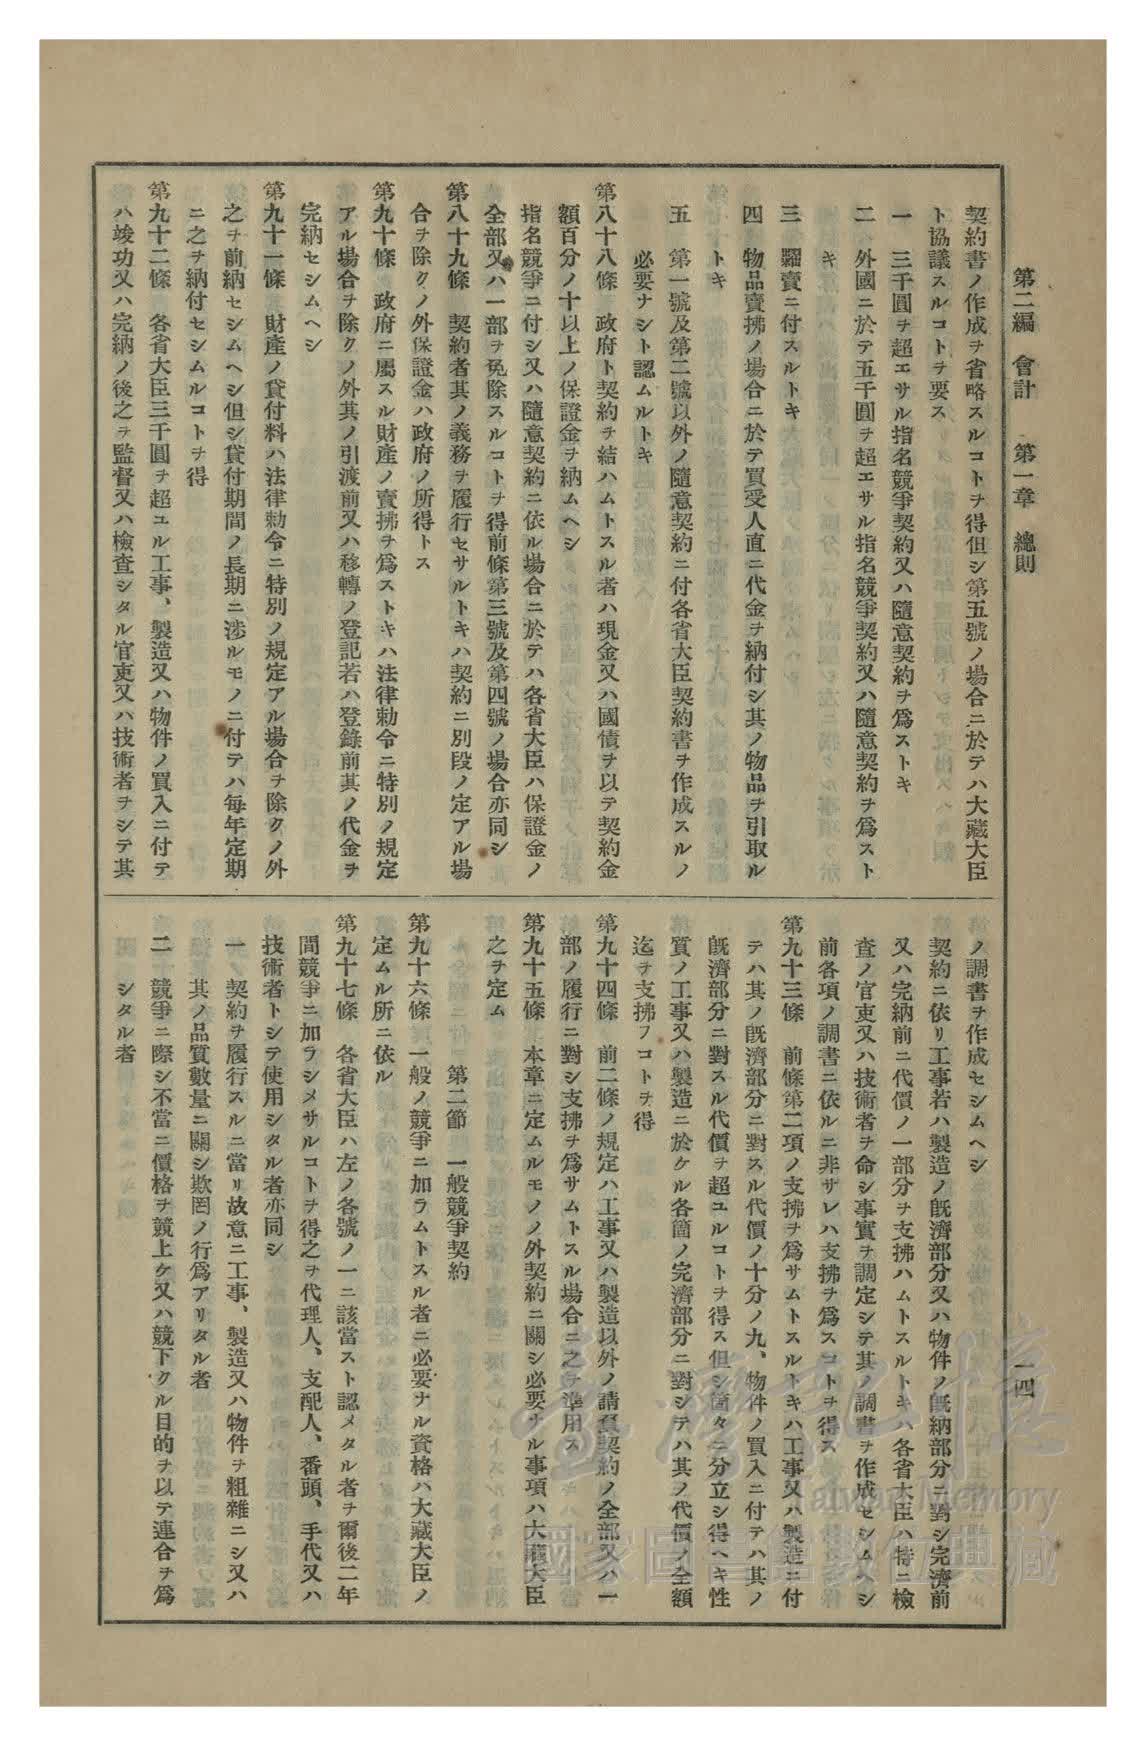 第二編 會計 第一章 總則
一四
契約書ノ作成ヲ省略スルコトヲ得但シ第五號ノ場合ニ於テハ大藏大臣
ト協議スルコトヲ要ス
一 三千圓ヲ超エサル指名競爭契約又ハ隨意契約ヲ爲ストキ
二 外國ニ於テ五千圓ヲ超エサル指名競爭契約又ハ隨意契約ヲ爲スト
キ
三 糶賣ニ付スルトキ
四 物品賣拂ノ場合ニ於テ買受人直ニ代金ヲ納付シ其ノ物品ヲ引取ル
トキ
五 第一號及第二號以外ノ隨意契約ニ付各省大臣契約書ヲ作成スルノ
必要ナシト認ムルトキ
第八十八條 政府ト契約ヲ結ハムトスル者ハ現金又ハ國債ヲ以テ契約金
額百分ノ十以上ノ保證金ヲ納ムヘシ
指名競爭ニ付シ又ハ隨意契約ニ依ル場合ニ於テハ各省大臣ハ保證金ノ
全部又ハ一部ヲ免除スルコトヲ得前條第三號及第四號ノ場合亦同シ
第八十九條 契約者其ノ義務ヲ履行セサルトキハ契約ニ別段ノ定アル場
合ヲ除クノ外保證金ハ政府ノ所得トス
第九十條 政府ニ屬スル財產ノ賣拂ヲ爲ストキハ法律勅令ニ特別ノ規定
アル場合ヲ除クノ外其ノ引渡前又ハ移轉ノ登記若ハ登錄前其ノ代金ヲ
完納セシムヘシ
第九十一條 財產ノ貸付料ハ法律勅令ニ特別ノ規定アル場合ヲ除クノ外
之ヲ前納セシムヘシ但シ貸付期間ノ長期ニ涉ルモノニ付テハ每年定期
ニ之ヲ納付セシムルコトヲ得
第九十二條 各省大臣三千圓ヲ超ユル工事、製造又ハ物件ノ買入ニ付テ
ハ竣功又ハ完納ノ後之ヲ監督又ハ檢查シタル官吏又ハ技術者ヲシテ其
ノ調書ヲ作成セシムヘシ
契約ニ依リ工事若ハ製造ノ旣濟部分又ハ物件ノ旣納部分ニ對シ完濟前
又ハ完納前ニ代價ノ一部分ヲ支拂ハムトスルトキハ各省大臣ハ特ニ檢
查ノ官吏又ハ技術者ヲ命シ事實ヲ調定シテ其ノ調書ヲ作成セシムヘシ
前各項ノ調書ニ依ルニ非サレハ支拂ヲ爲スコトヲ得ス
第九十三條 前條第二項ノ支拂ヲ爲サムトスルトキハ工事又ハ製造ニ付
テハ其ノ旣濟部分ニ對スル代價ノ十分ノ九、物件ノ買入ニ付テハ其ノ
旣濟部分ニ對スル代價ヲ超ユルコトヲ得ス但シ箇々ニ分立シ得ヘキ性
質ノ工事又ハ製造ニ於ケル各箇ノ完濟部分ニ對シテハ其ノ代價ノ全額
迄ヲ支拂フコトヲ得
第九十四條 前二條ノ規定ハ工事又ハ製造以外ノ請負契約ノ全部又ハ一
部ノ履行ニ對シ支拂ヲ爲サムトスル場合ニ之ヲ準用ス
第九十五條 本章ニ定ムルモノノ外契約ニ關シ必要ナル事項ハ大藏大臣
之ヲ定ム
第二節 一般競爭契約
第九十六條 一般ノ競爭ニ加ラムトスル者ニ必要ナル資格ハ大藏大臣ノ
定ムル所ニ依ル
第九十七條 各省大臣ハ左ノ各號ノ一ニ該當スト認メタル者ヲ爾後二年
間競爭ニ加ラシメサルコトヲ得之ヲ代理人、支配人、番頭、手代又ハ
技術者トシテ使用シタル者亦同シ
一 契約ヲ履行スルニ當リ故意ニ工事、製造又ハ物件ヲ粗雜ニシ又ハ
其ノ品質數量ニ關シ欺罔ノ行爲アリタル者
二 競爭ニ際シ不當ニ價格ヲ競上ケ又ハ競下クル目的ヲ以テ連合ヲ爲
シタル者
臺灣記憶
Taiwan Memory
國家圖書館數位典藏